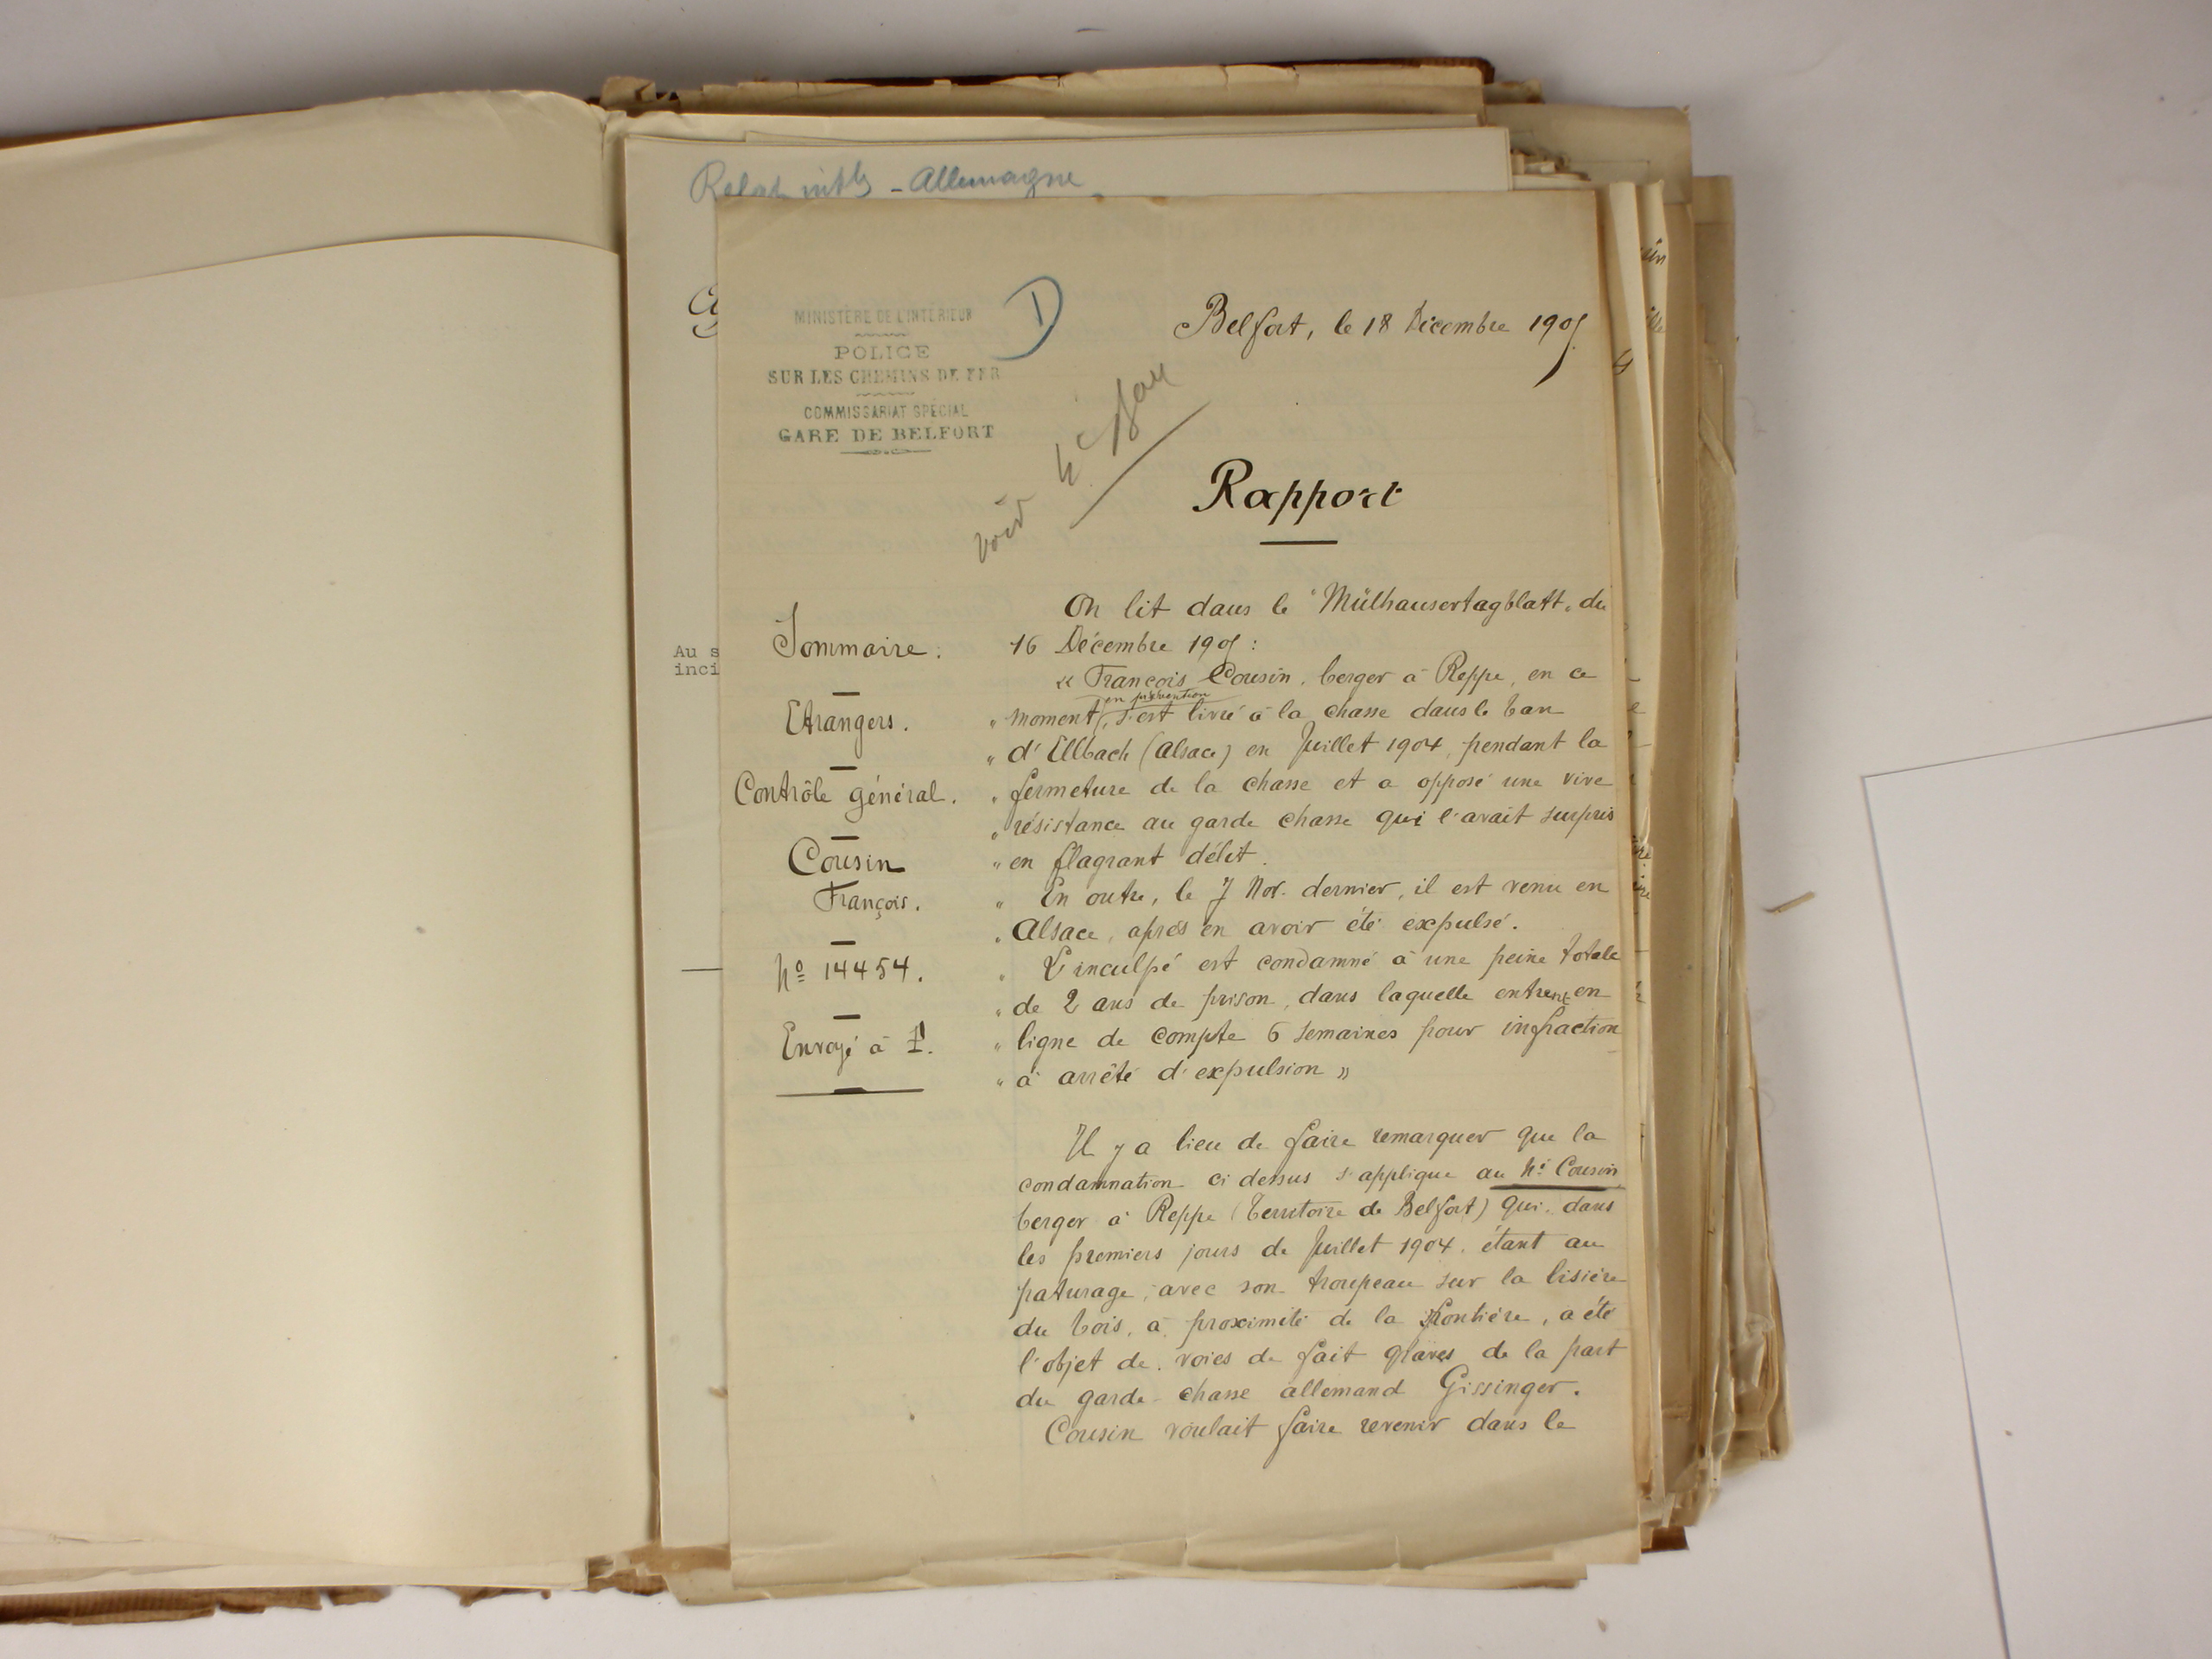 Allemagne
MINISTÈRE DE L'INTÉRIEUR
POLICE
SUR LES CHEMINS DE FER
COMMISSARIAT SPÉCIAL
GARE DE BELFORT
D
Belfort, le 18 Décembre 1905
voir
Rapport
Au s
inci
Sommaire.
Etrangers.
Contrôle général.
Cousin
François.
No 14454.
Envoyé à I.
On lit dans le "Mülhausertagblatt" du
16 Décembre 1905 :
« François Cousin, berger à Reppe, en ce
" moment, en prévention s'est livré à la chasse dans le ban
" d'Ellbach (Alsace) en Juillet 1904, pendant la
" fermeture de la chasse et a opposé une vive
" résistance au garde chasse qui l'avait surpris
" en flagrant délit.
" En outre, le 7 Nov. dernier, il est venu en
" Alsace, après en avoir été expulsé.
" L'inculpé est condamné à une peine totale
" de 2 ans de prison, dans laquelle entrent en
" ligne de compte 6 semaines pour infraction
" à arrêté d'expulsion »
Il y a lieu de faire remarquer que la
condamnation ci dessus s'applique au né Cousin,
berger à Reppe (Territoire de Belfort) qui, dans
les premiers jours de Juillet 1904, étant au
paturage, avec son troupeau sur la lisière
du bois, à proximité de la frontière, a été
l'objet de voies de fait graves de la part
du garde-chasse allemand Gissinger.
Cousin voulait faire revenir dans le